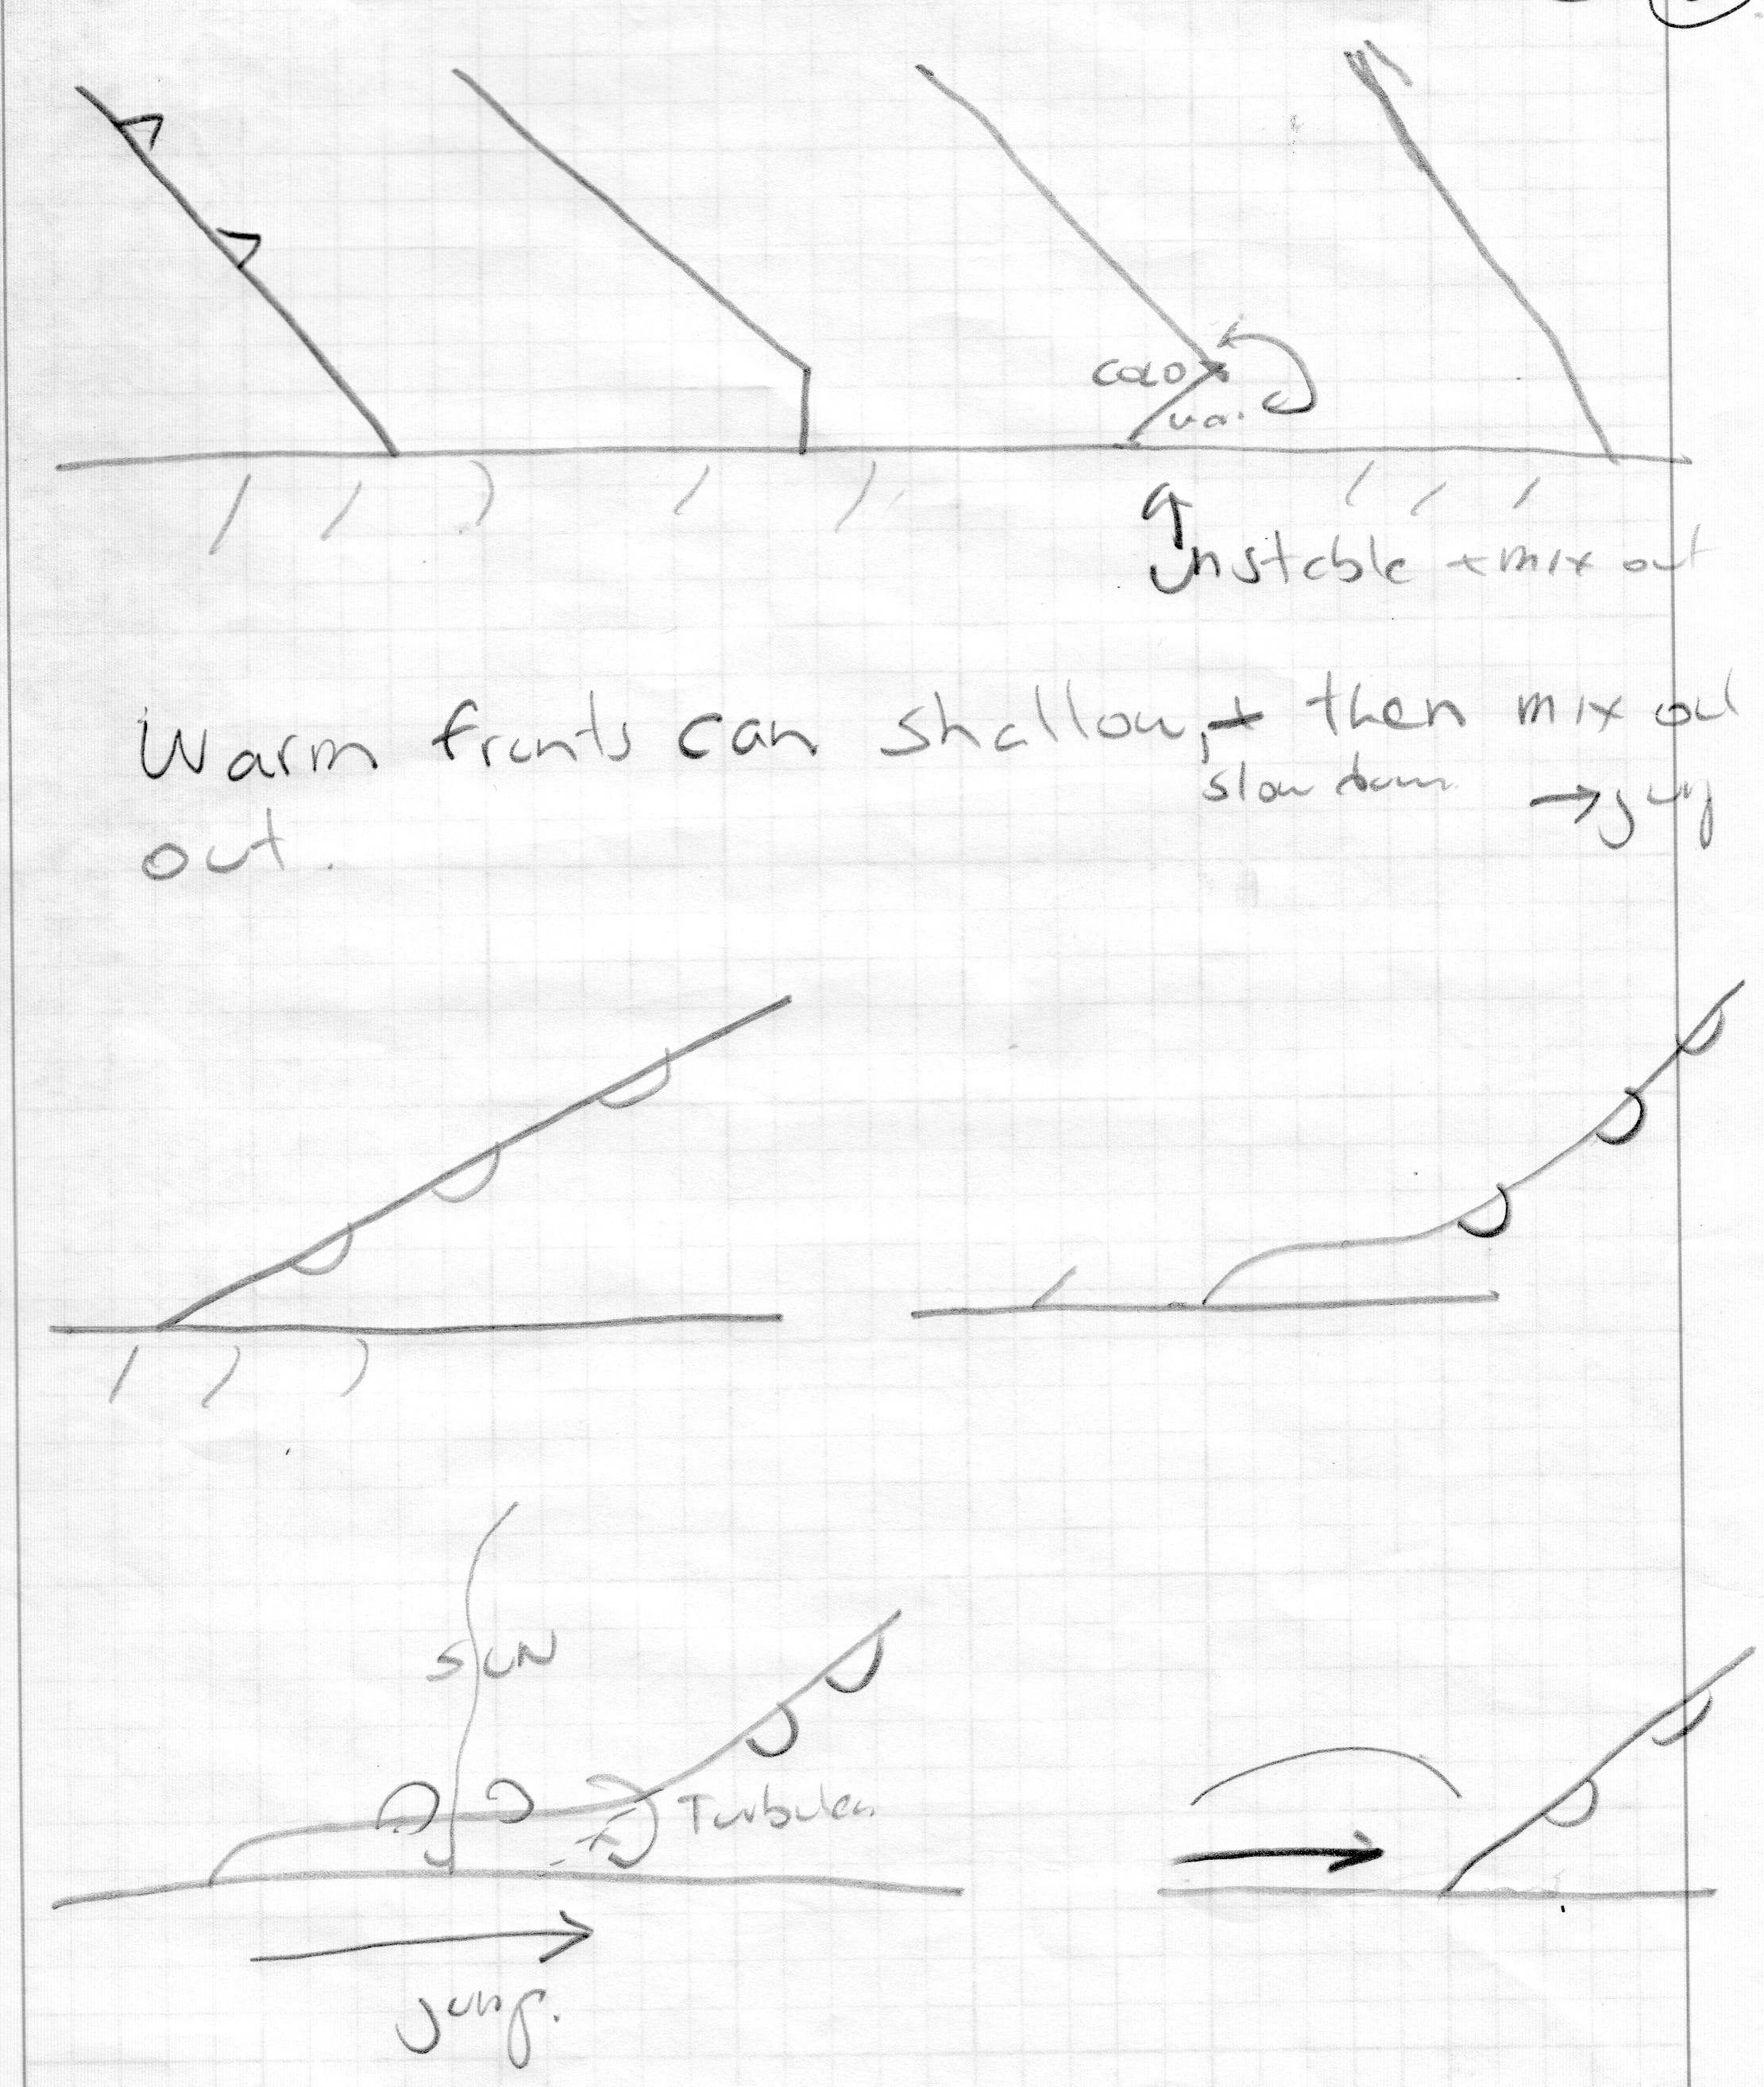 cold
wa.
Unstable + mix out
Warm fronts can shallow, + then mix out
slow down → jump
out.
SUN
Turbulen
jump.